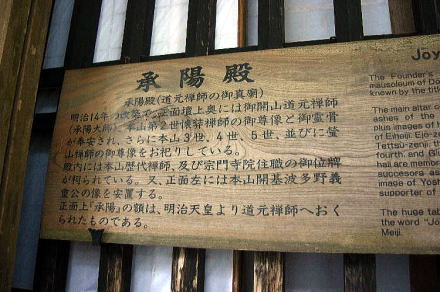 承陽殿
承陽殿(道元禅師の御真廟)
明治14年の改築で、正面壇上奥には御開山道元禅師
(承陽大師)、本山第2世懐弉禅師の御尊像と御霊骨
が奉安され、さらに本山3世、4世、5世、並びに瑩
山禅師の御尊像をお祀りしている。
殿内には本山歴代禅師、及び宗門寺院住職の御位牌
が祠られている。又、正面左には本山開基波多野義
重公の像を安置する。
正面上「承陽」の額は、明治天皇より道元禅師へおく
られたものである。
Joy
The Founder's
mausoleum of D
known by the titl
The main altar o
ashes of the
plus images of t
of Eiheiji: Ejo-z
Tettsu-zenji, th
fourth, and
hall are memor
successors as
image of Yos
supporter of
The huge tabl
the word "Jo
Meiji.